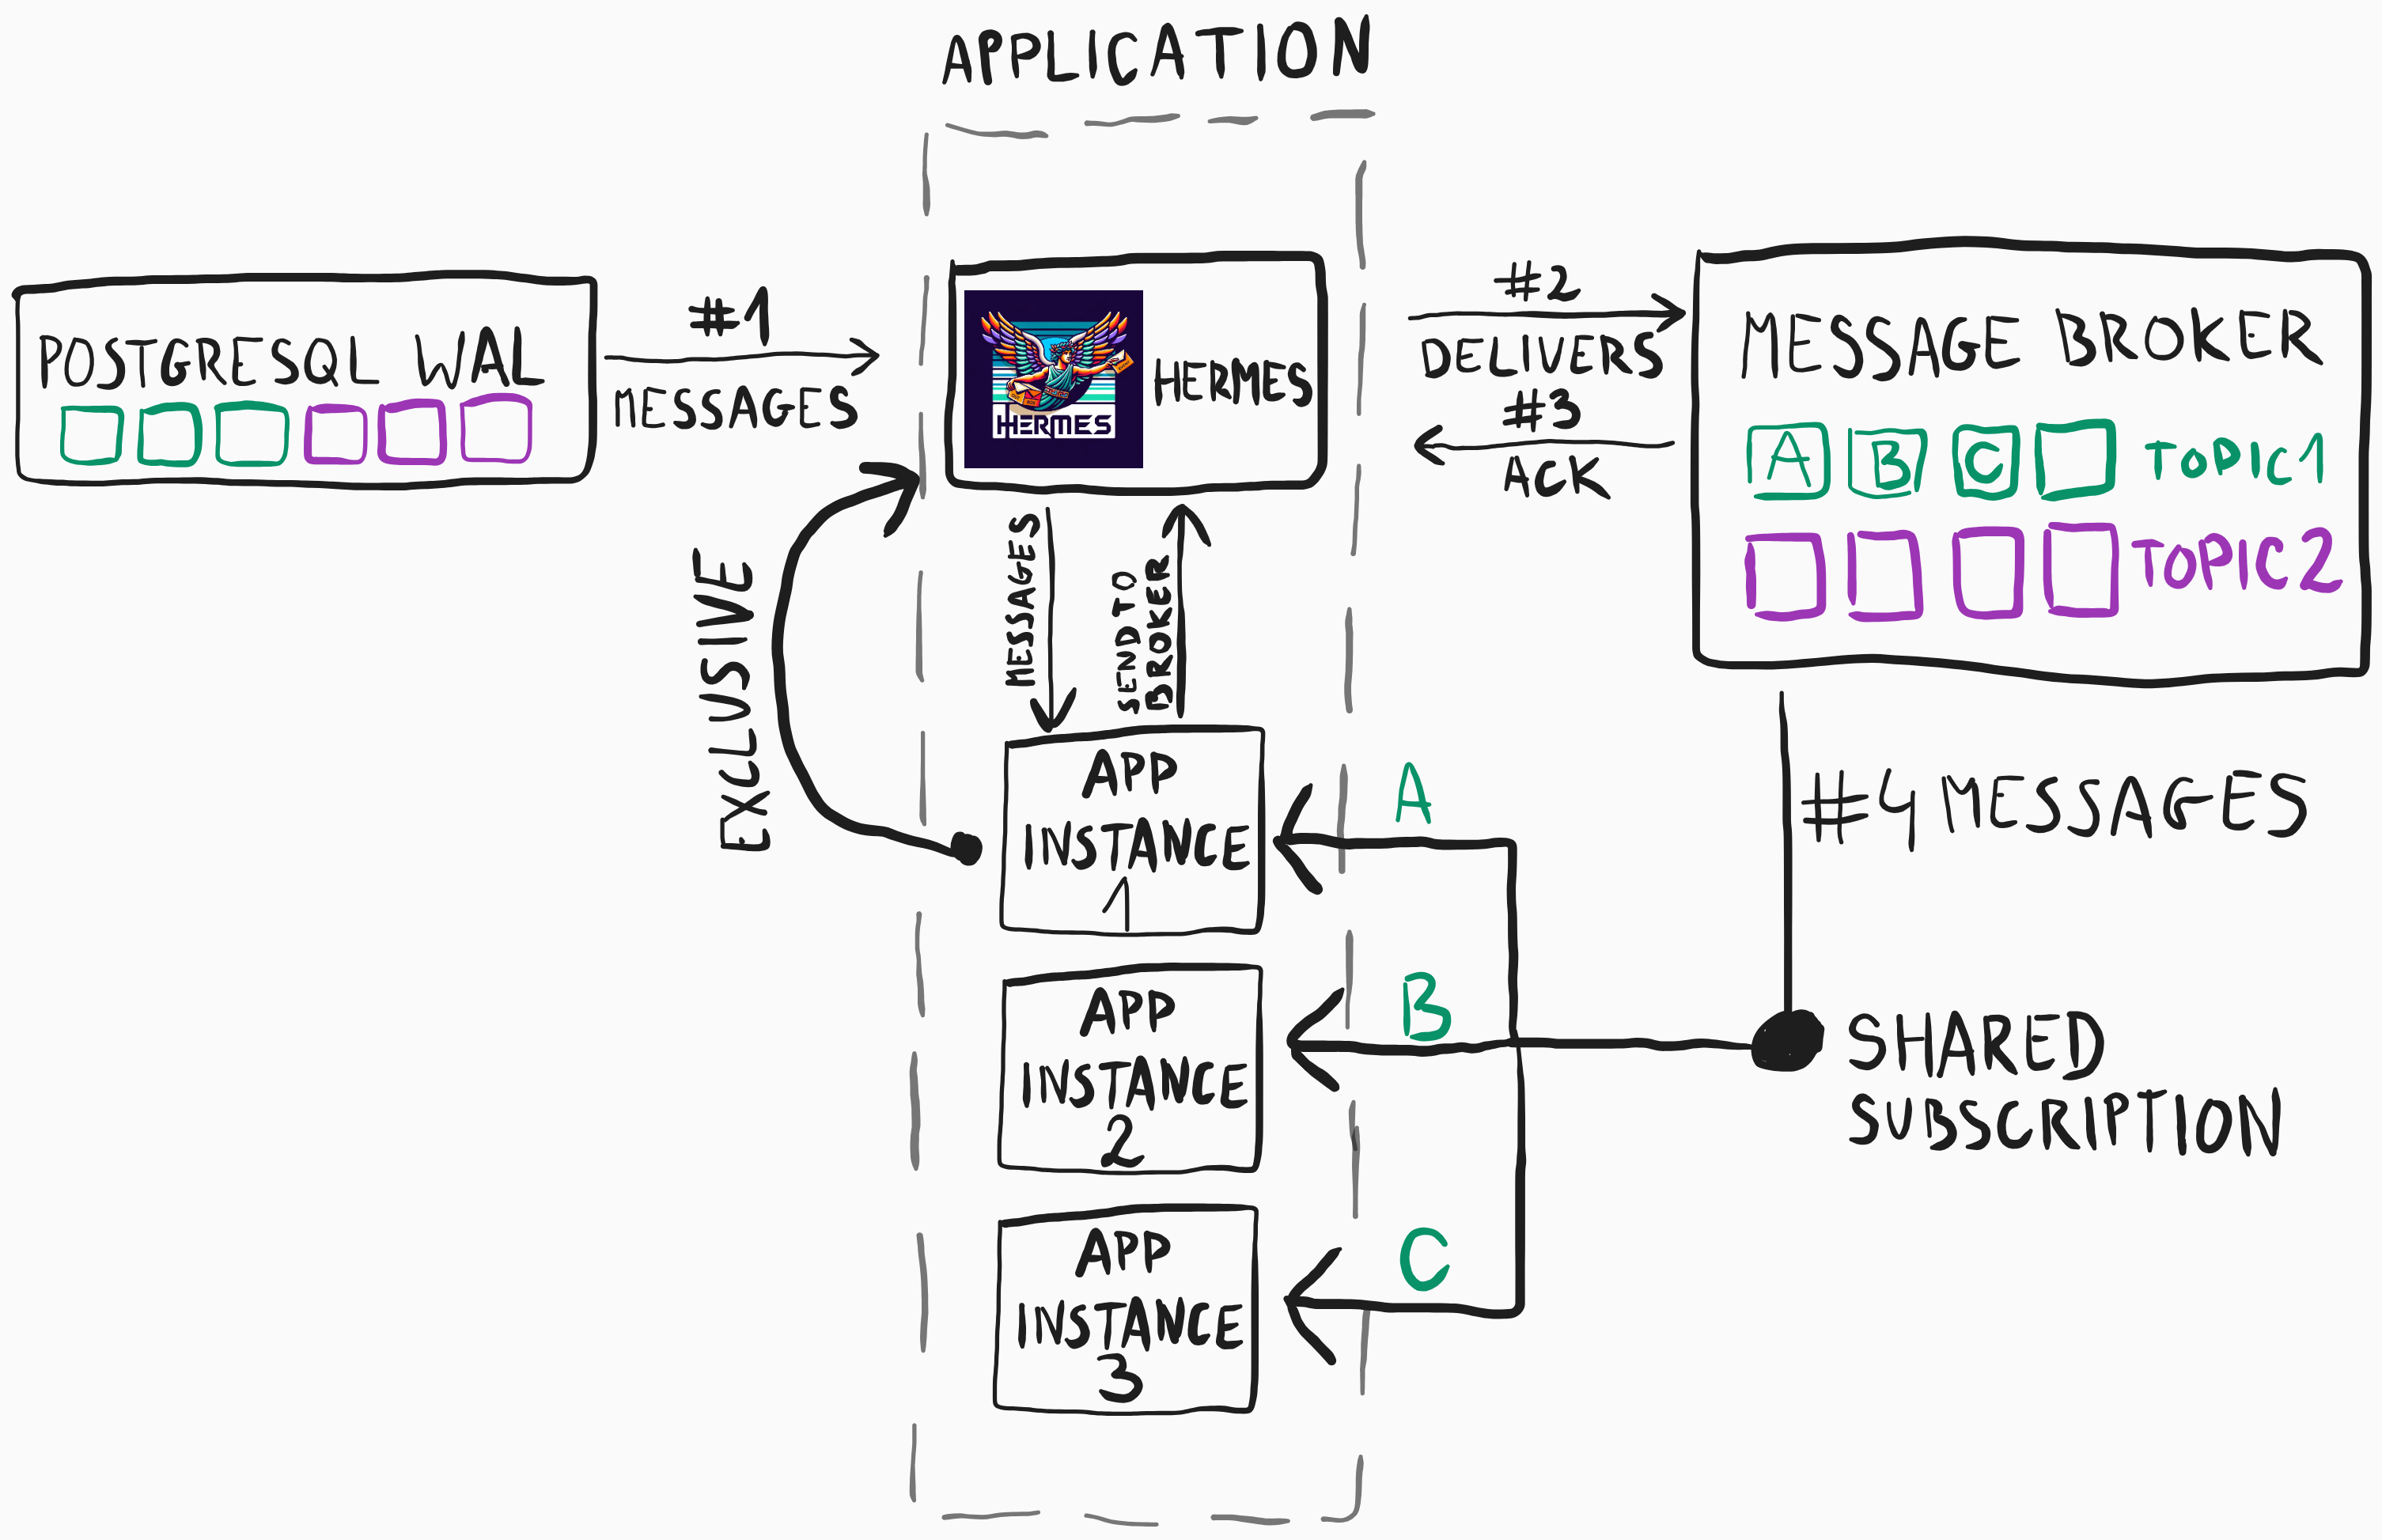 APPLICATION
POSTGRESQL WAL
#1
MESSAGES
HERMES
HERMES
#2
DELIVERS
#3
ACK
MESSAGE BROKER
A B C TOPIC1
TOPIC2
EXCLUSIVE
MESSAGES
SEND TO
BROKER
APP
INSTANCE
1
A
#4 MESSAGES
APP
INSTANCE
2
B
SHARED
SUBSCRIPTION
APP
INSTANCE
3
C